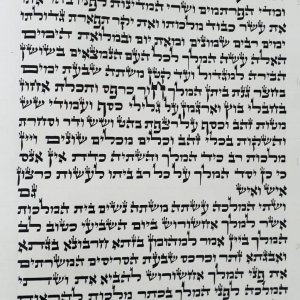 ומדי הפרתמים ושרי המדינות לפניו בהראתו
את עשר כבוד מלכותו ואת יקר תפארת גדולתו
ימים רבים שמונים ומאת יום ובמלואת הימים
האלה עשה המלך לכל העם הנמצאים בשושן
הבירה למגדול ועד קטן משתה שבעת ימים
בחצר גנת ביתן המלך חור כרפס ותכלת אחוז
בחבלי בוץ וארגמן על גלילי כסף ועמודי שש
מטות זהב וכסף על רצפת בהט ושש ודר וסחרת
והשקות בכלי זהב וכלים מכלים שונים ויין
מלכות רב כיד המלך והשתיה כדת אין אנס
כי כן יסד המלך על כל רב ביתו לעשות כרצון
איש ואיש גם
ושתי המלכה עשתה משתה נשים בית המלכות
אשר למלך אחשורוש ביום השביעי כטוב לב
המלך ביין אמר למהומן בזתא חרבונא בגתא
ואבגתא זתר וכרכס שבעת הסריסים המשרתים
את פני המלך אחשורוש להביא את ושתי
המלכה לפני המלך בכתר מלכות להראות